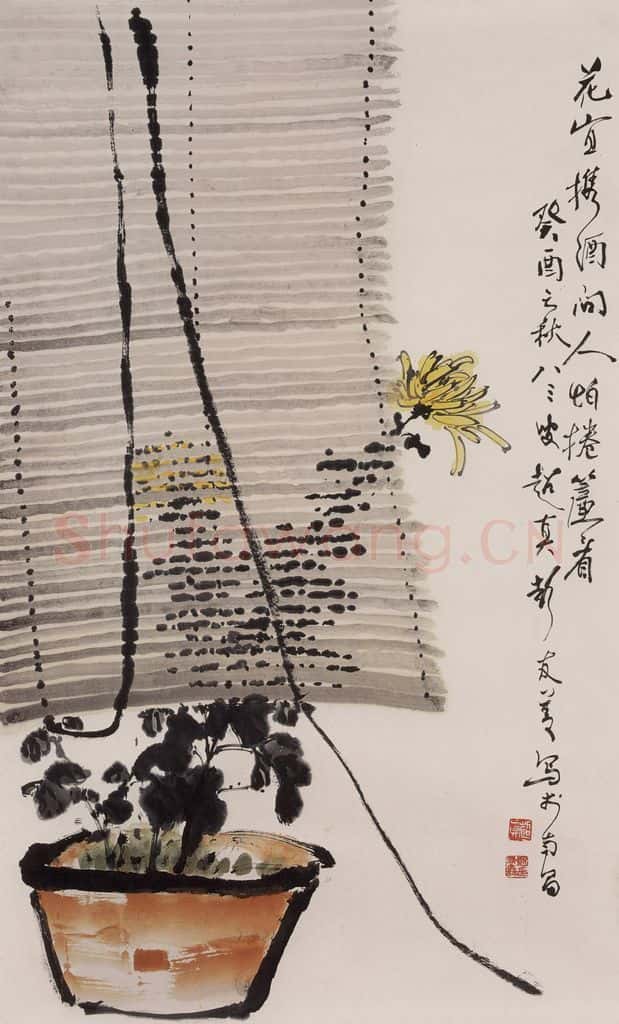 花宜携酒问人怕捲簾看
癸酉之秋八三叟超真彭友善写於南昌
Shufawang.CN